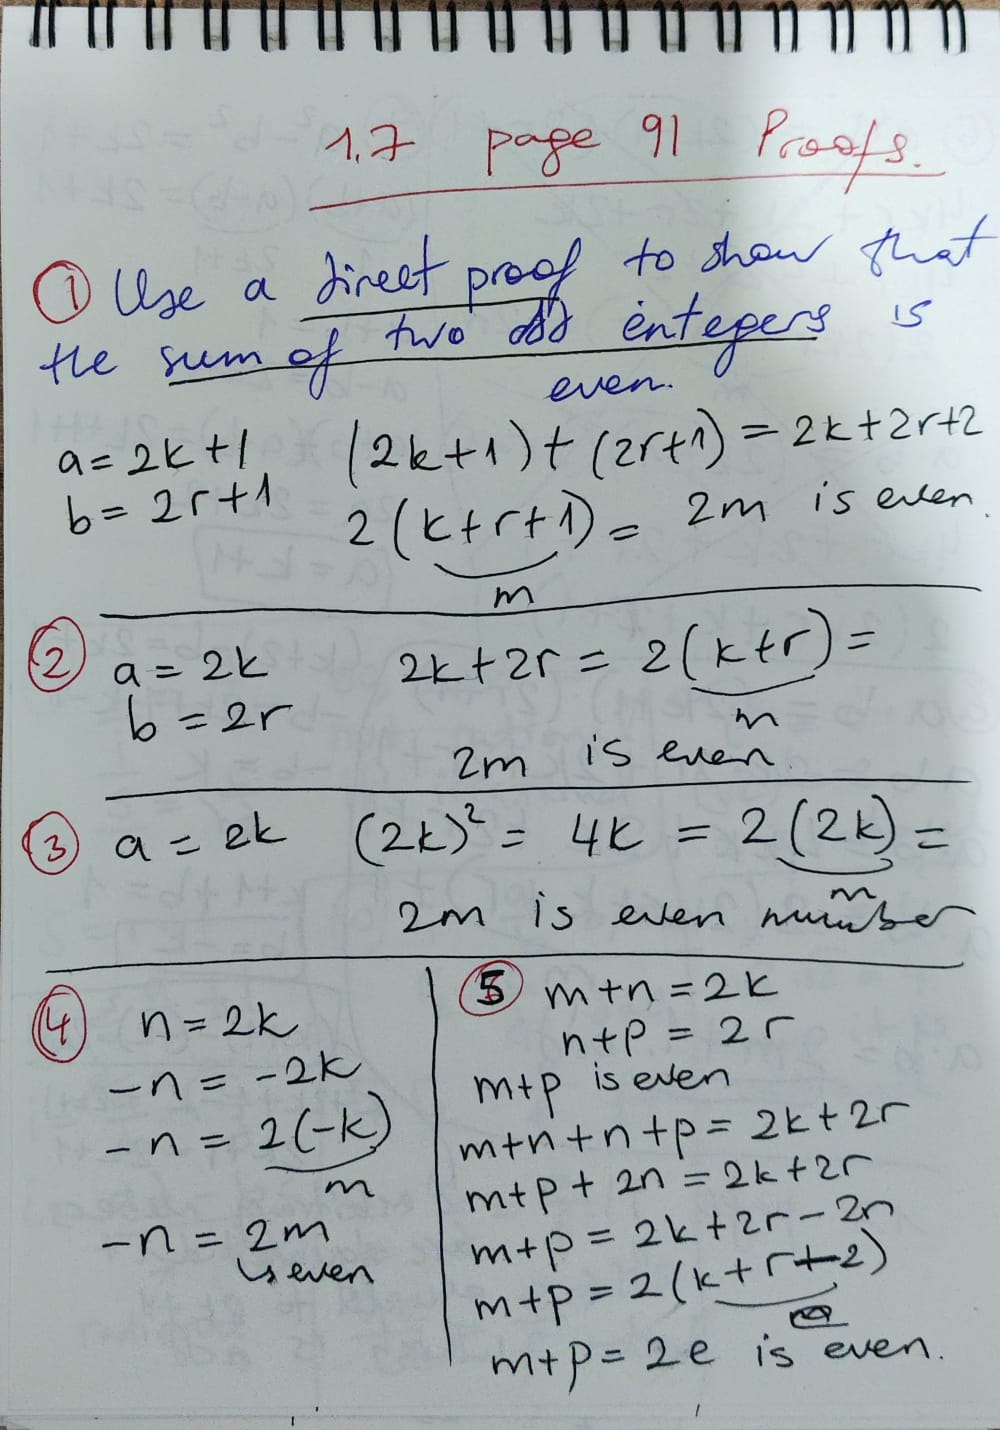 1.7 page 91 Proofs.
① Use a direct proof to show that
the sum of two odd entegers is
even.
a = 2k+1 (2k+1)+(2r+1) = 2k+2r+2
b = 2r+1 2(k+r+1) = 2m is even.
m
② a = 2k 2k+2r = 2(k+r) =
b = 2r m
2m is even.
③ a = 2k (2k)² = 4k = 2(2k) =
m
2m is even number
④ n = 2k
-n = -2k
-n = 2(-k)
m
-n = 2m
is even
⑤ m+n = 2k
n+p = 2r
m+p is even
m+n+n+p = 2k+2r
m+p+2n = 2k+2r
m+p = 2k+2r-2n
m+p = 2(k+r+2)
m+p = 2e is even.